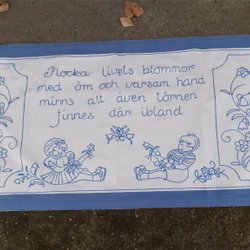 Plocka livets blommor
med öm och varsam hand
minns att även törnen
finnes där ibland